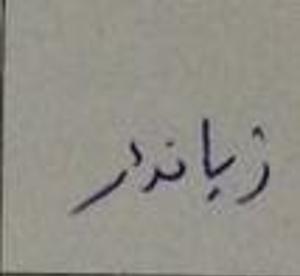 زباندر